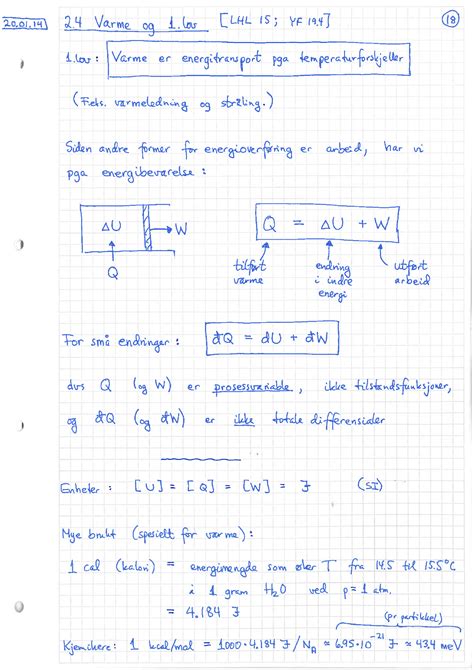 20.01.14 2.4 Varme og 1. lov [LHL 15; YF 19.4] 18
1. lov: Varme er energitransport pga temperaturforskjeller
(F.eks. varmeledning og stråling.)
Siden andre former for energioverføring er arbeid, har vi
pga energibevarelse:
ΔU → W
Q
Q = ΔU + W
tilført varme
endring i indre energi
utført arbeid
For små endringer: đQ = dU + đW
dvs Q (og W) er prosessvariable, ikke tilstandsfunksjoner,
og đQ (og đW) er ikke totale differensialer
Enheter: [U] = [Q] = [W] = J (SI)
Mye brukt (spesielt for varme):
1 cal (kalori) = energimengde som øker T fra 14.5 til 15.5°C
i 1 gram H₂O ved p = 1 atm.
= 4.184 J
(pr partikkel)
Kjemikere: 1 kcal/mol = 1000·4.184 J/N_A ≃ 6.95·10⁻²¹ J ≃ 43.4 meV